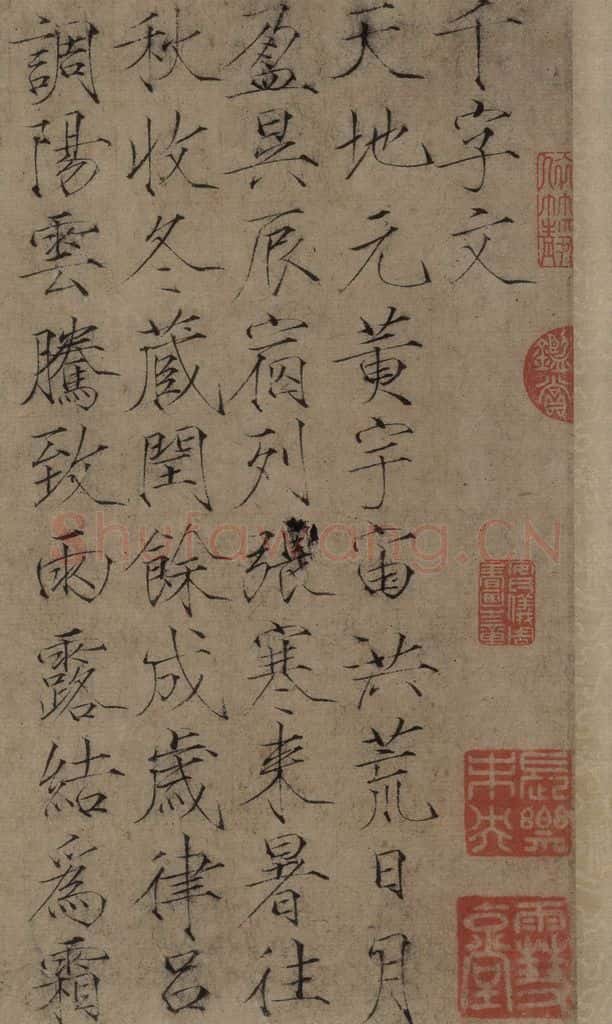 千字文
天地元黄宇宙洪荒日月
盈昃辰宿列張寒来暑往
秋收冬蔵閏餘成歲律呂
調陽雲騰致雨露結爲霜
鑑賞
Shufawang.CN